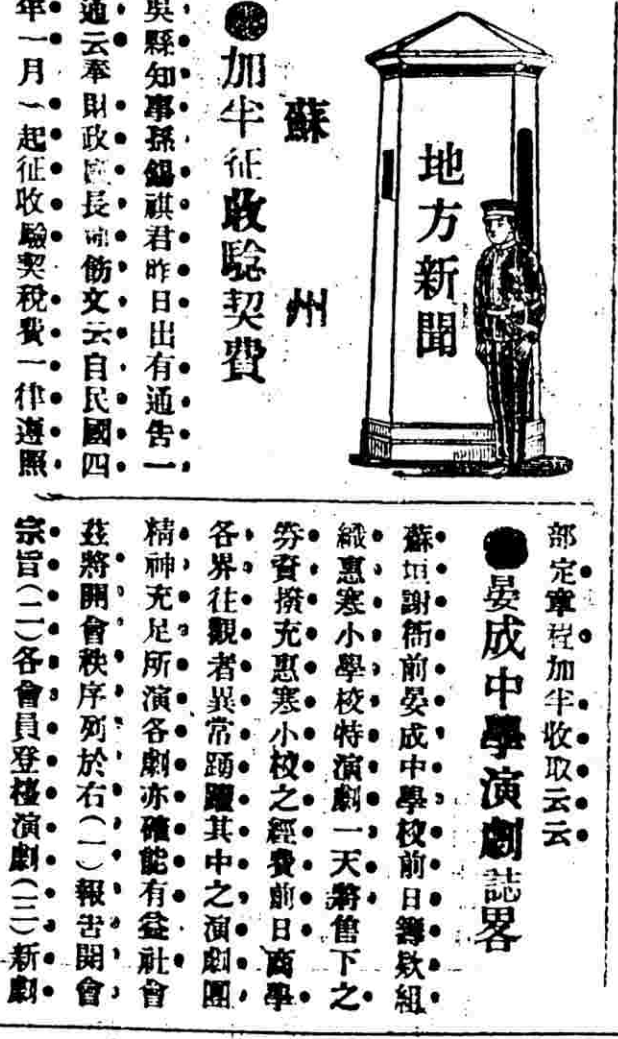 地方新聞
蘇州
●加半征收驗契費
吳縣知事孫錫祺君昨日出有通告一
通云奉財政廳長 飭文云自民國四
年一月一起征收驗契稅費一律遵照
部定章程加半收取云云
●晏成中學演劇誌畧
蘇垣謝衙前晏成中學校前日籌欵組
織惠寒小學校特演劇一天將售下之
劵資撥充惠寒小校之經費前日商學
各界往觀者異常踴躍其中之演劇團
精神充足所演各劇亦確能有益社會
茲將開會秩序列於右(一)報吿開會
宗旨(二)各會員登檯演劇(三)新劇